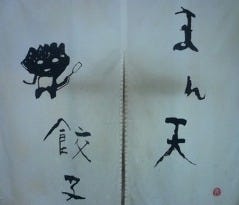 まん天
餃子